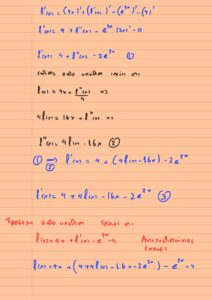 f'(x) = (4x)' + (f'(x))' - (e^{2x})' - (4)'
f'(x) = 4 + f''(x) - e^{2x} (2x)' - 0
f'(x) = 4 + f''(x) - 2e^{2x} ①
f(x) = 4x + f''(x)/4 =>
4f(x) = 16x + f''(x) =>
f''(x) = 4f(x) - 16x ②
① => ② f'(x) = 4 + (4f(x) - 16x) - 2e^{2x}
f'(x) = 4 + 4f(x) - 16x - 2e^{2x} ③
f(x) = 4x + f'(x) - e^{2x} - 4
f(x) = 4x + (4 + 4f(x) - 16x - 2e^{2x}) - e^{2x} - 4